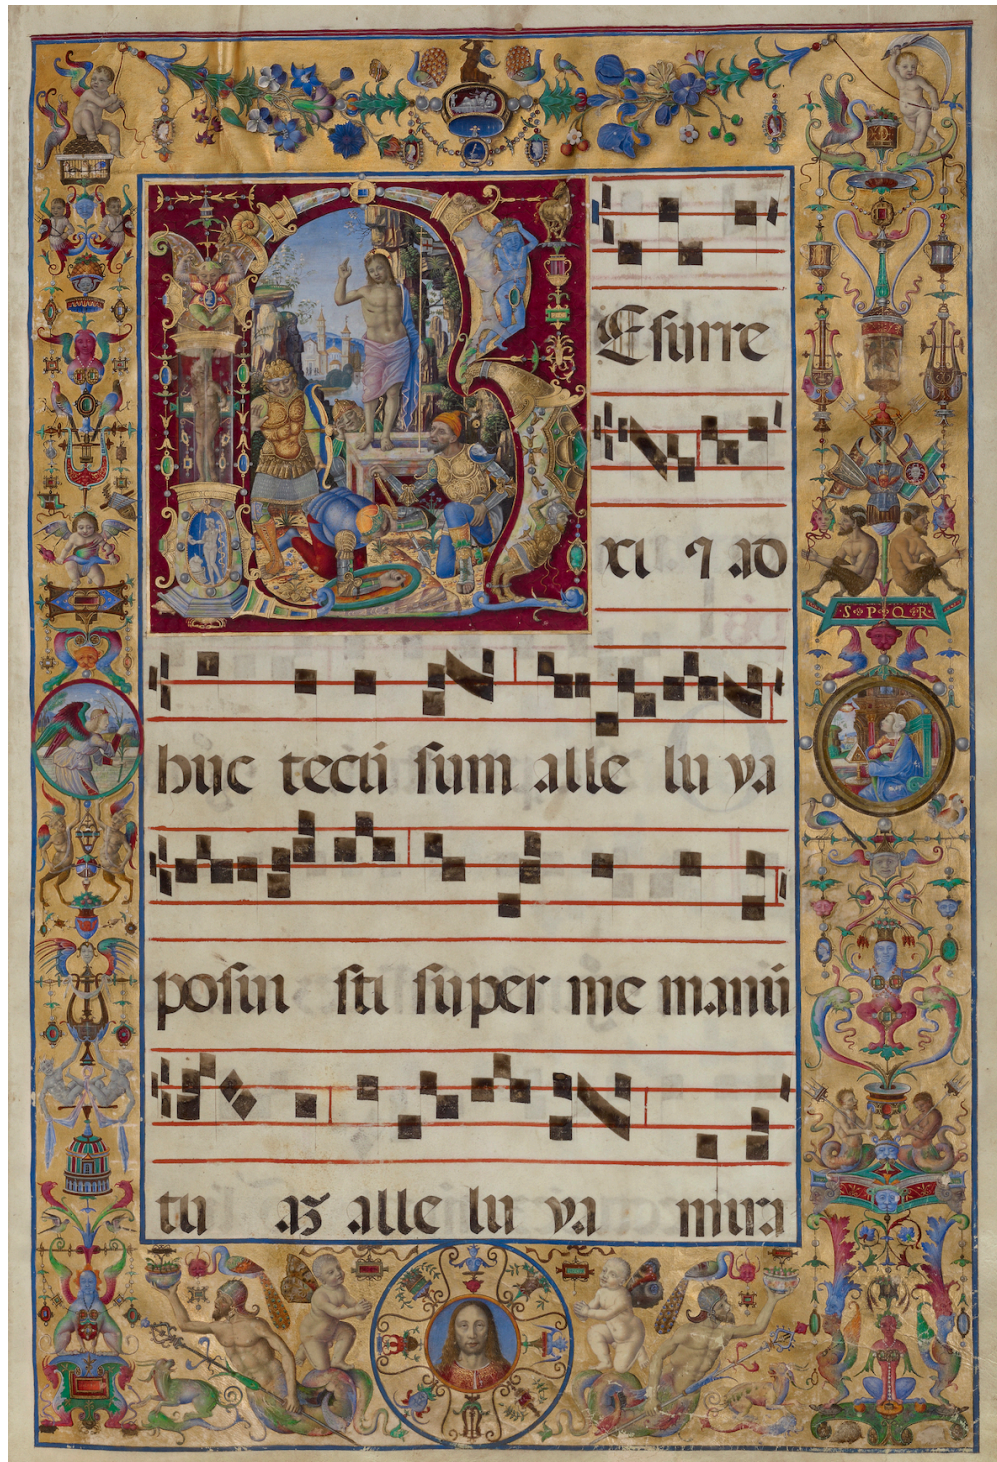 REsurre
xi ⁊ ad
S·P·Q·R·
huc tecū sum alle lu ya
posui sti super me manū
tu aʒ alle lu ya mira